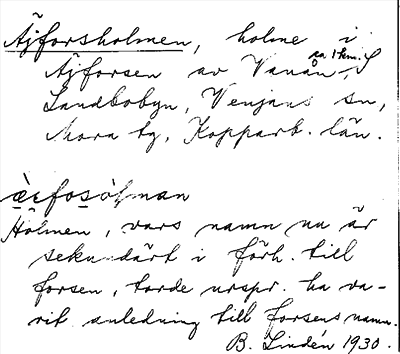 Äjforsholmen, holme i
Äjforsen av Vanån, ca. 1 km. S
Landbobyn, Venjans sn,
Mora tg, Kopparb. län.
Holmen, vars namn nu är
sekundärt i förh. till
forsen, torde urspr. ha va-
rit anledning till forsens namn.
B. Lindén 1930.